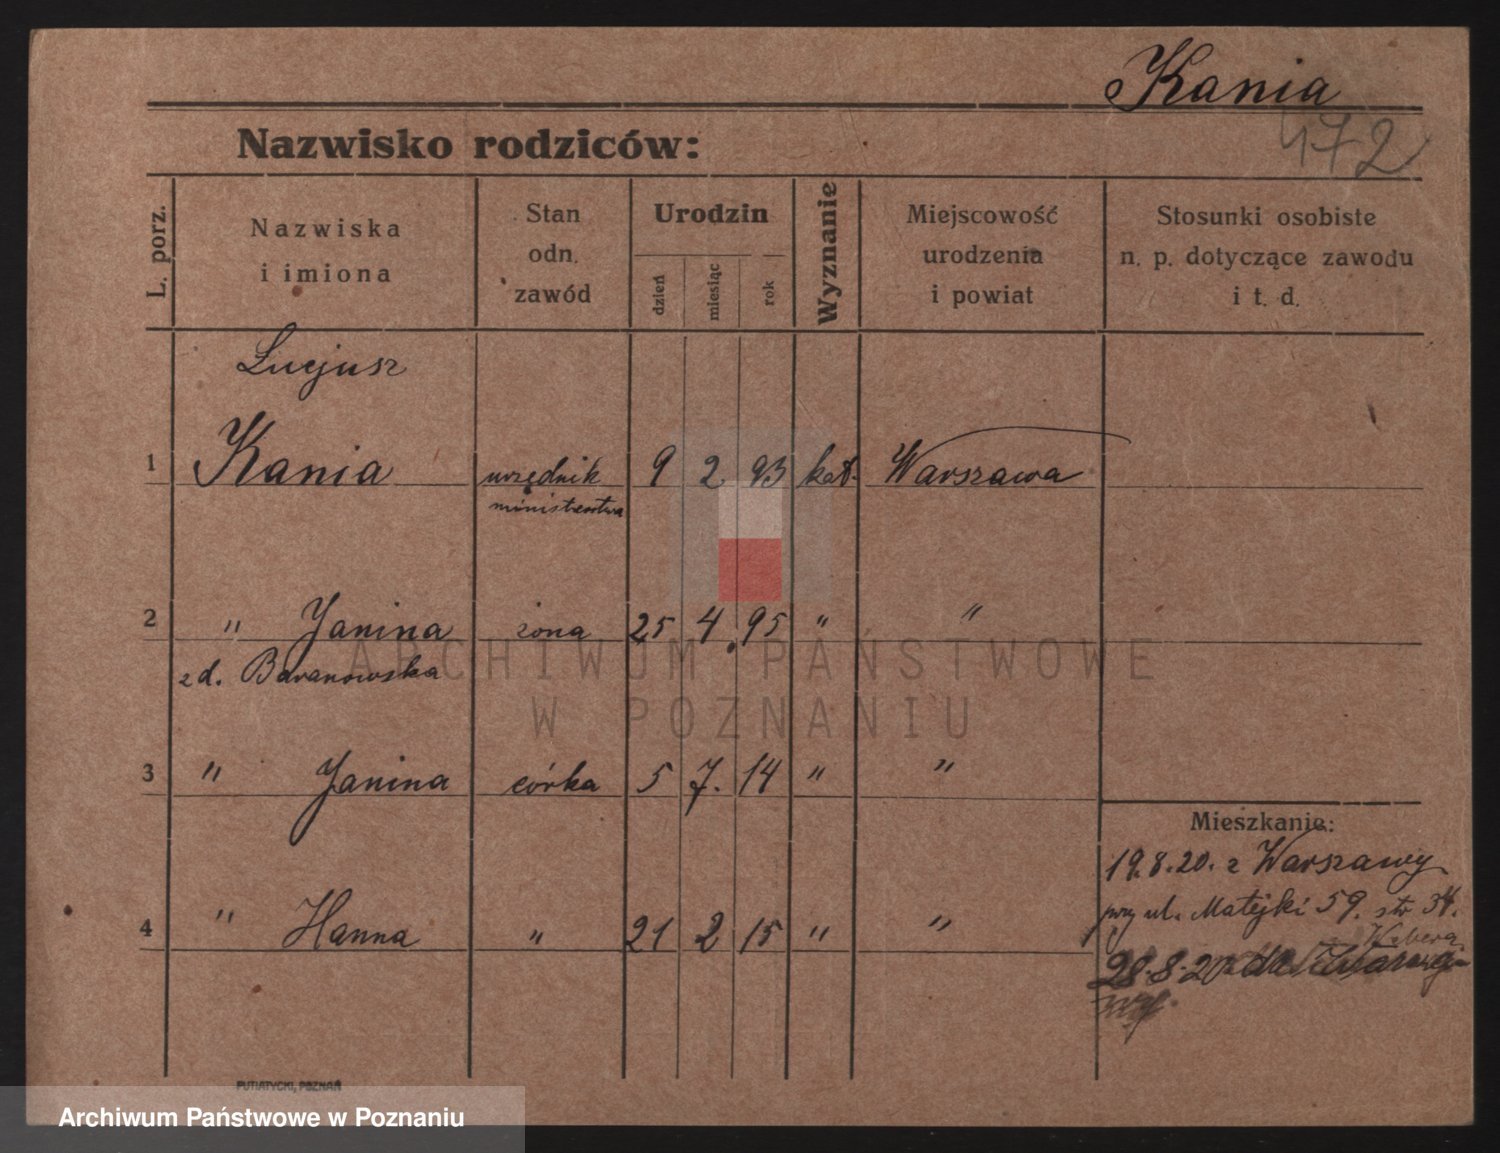 Kania
472
Nazwisko rodziców:
L. porz.
Nazwiska
i imiona
Stan
odn.
zawód
Urodzin
dzień
miesiąc
rok
Wyznanie
Miejscowość
urodzenia
i powiat
Stosunki osobiste
n. p. dotyczące zawodu
i t. d.
Lucjusz
1 Kania urzędnik 9 2 93 kat. Warszawa
ministerstwa
2 " Janina żona 25 4 95 " "
z d. Baranowska
3 " Janina córka 5 7. 14 " "
4 " Hanna " 21 2 15 " "
Mieszkanie:
19.8.20. z Warszawy
przy ul. Matejki 59. str 34.
28.8.20 do
PUTIATYCKI, POZNAŃ
ARCHIWUM PAŃSTWOWE
W POZNANIU
Archiwum Państwowe w Poznaniu